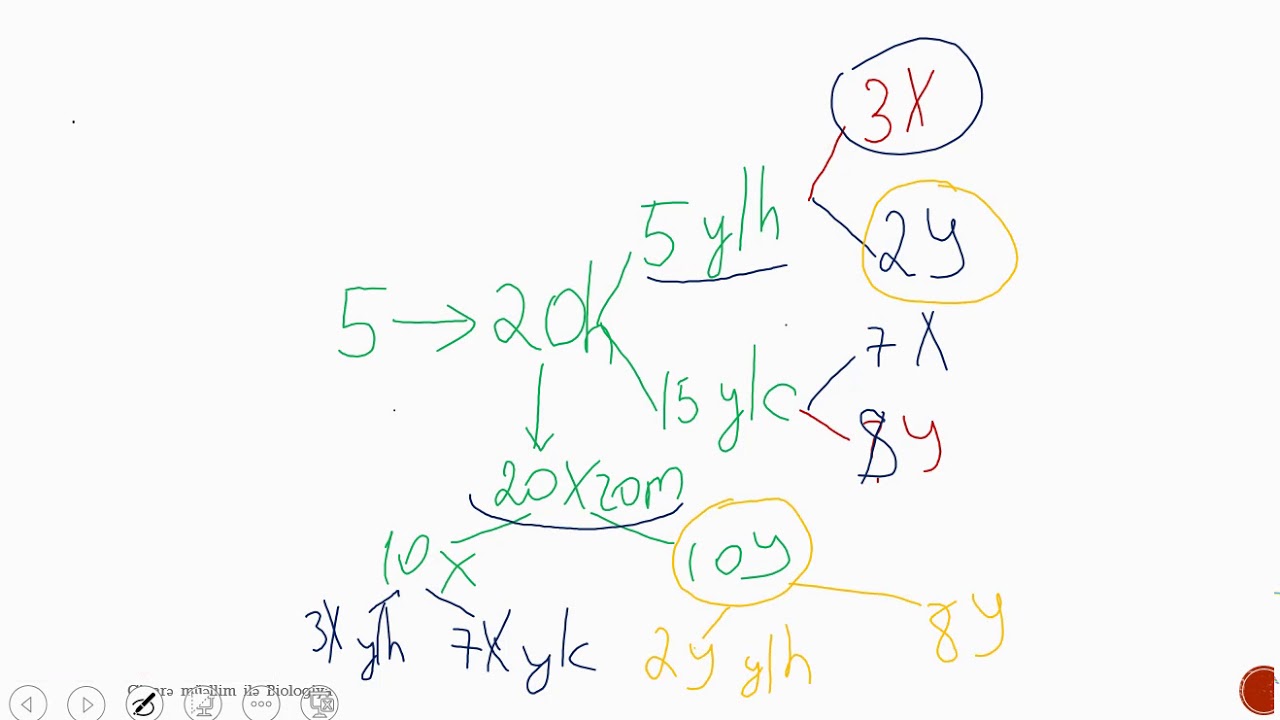 3X
5 y/h
2y
5 → 20h
7X
15 y/c
8y
20 Xrom
10x
10y
3X y/h
7X y/c
2y y/h
8y
müəllim ilə Biologiya